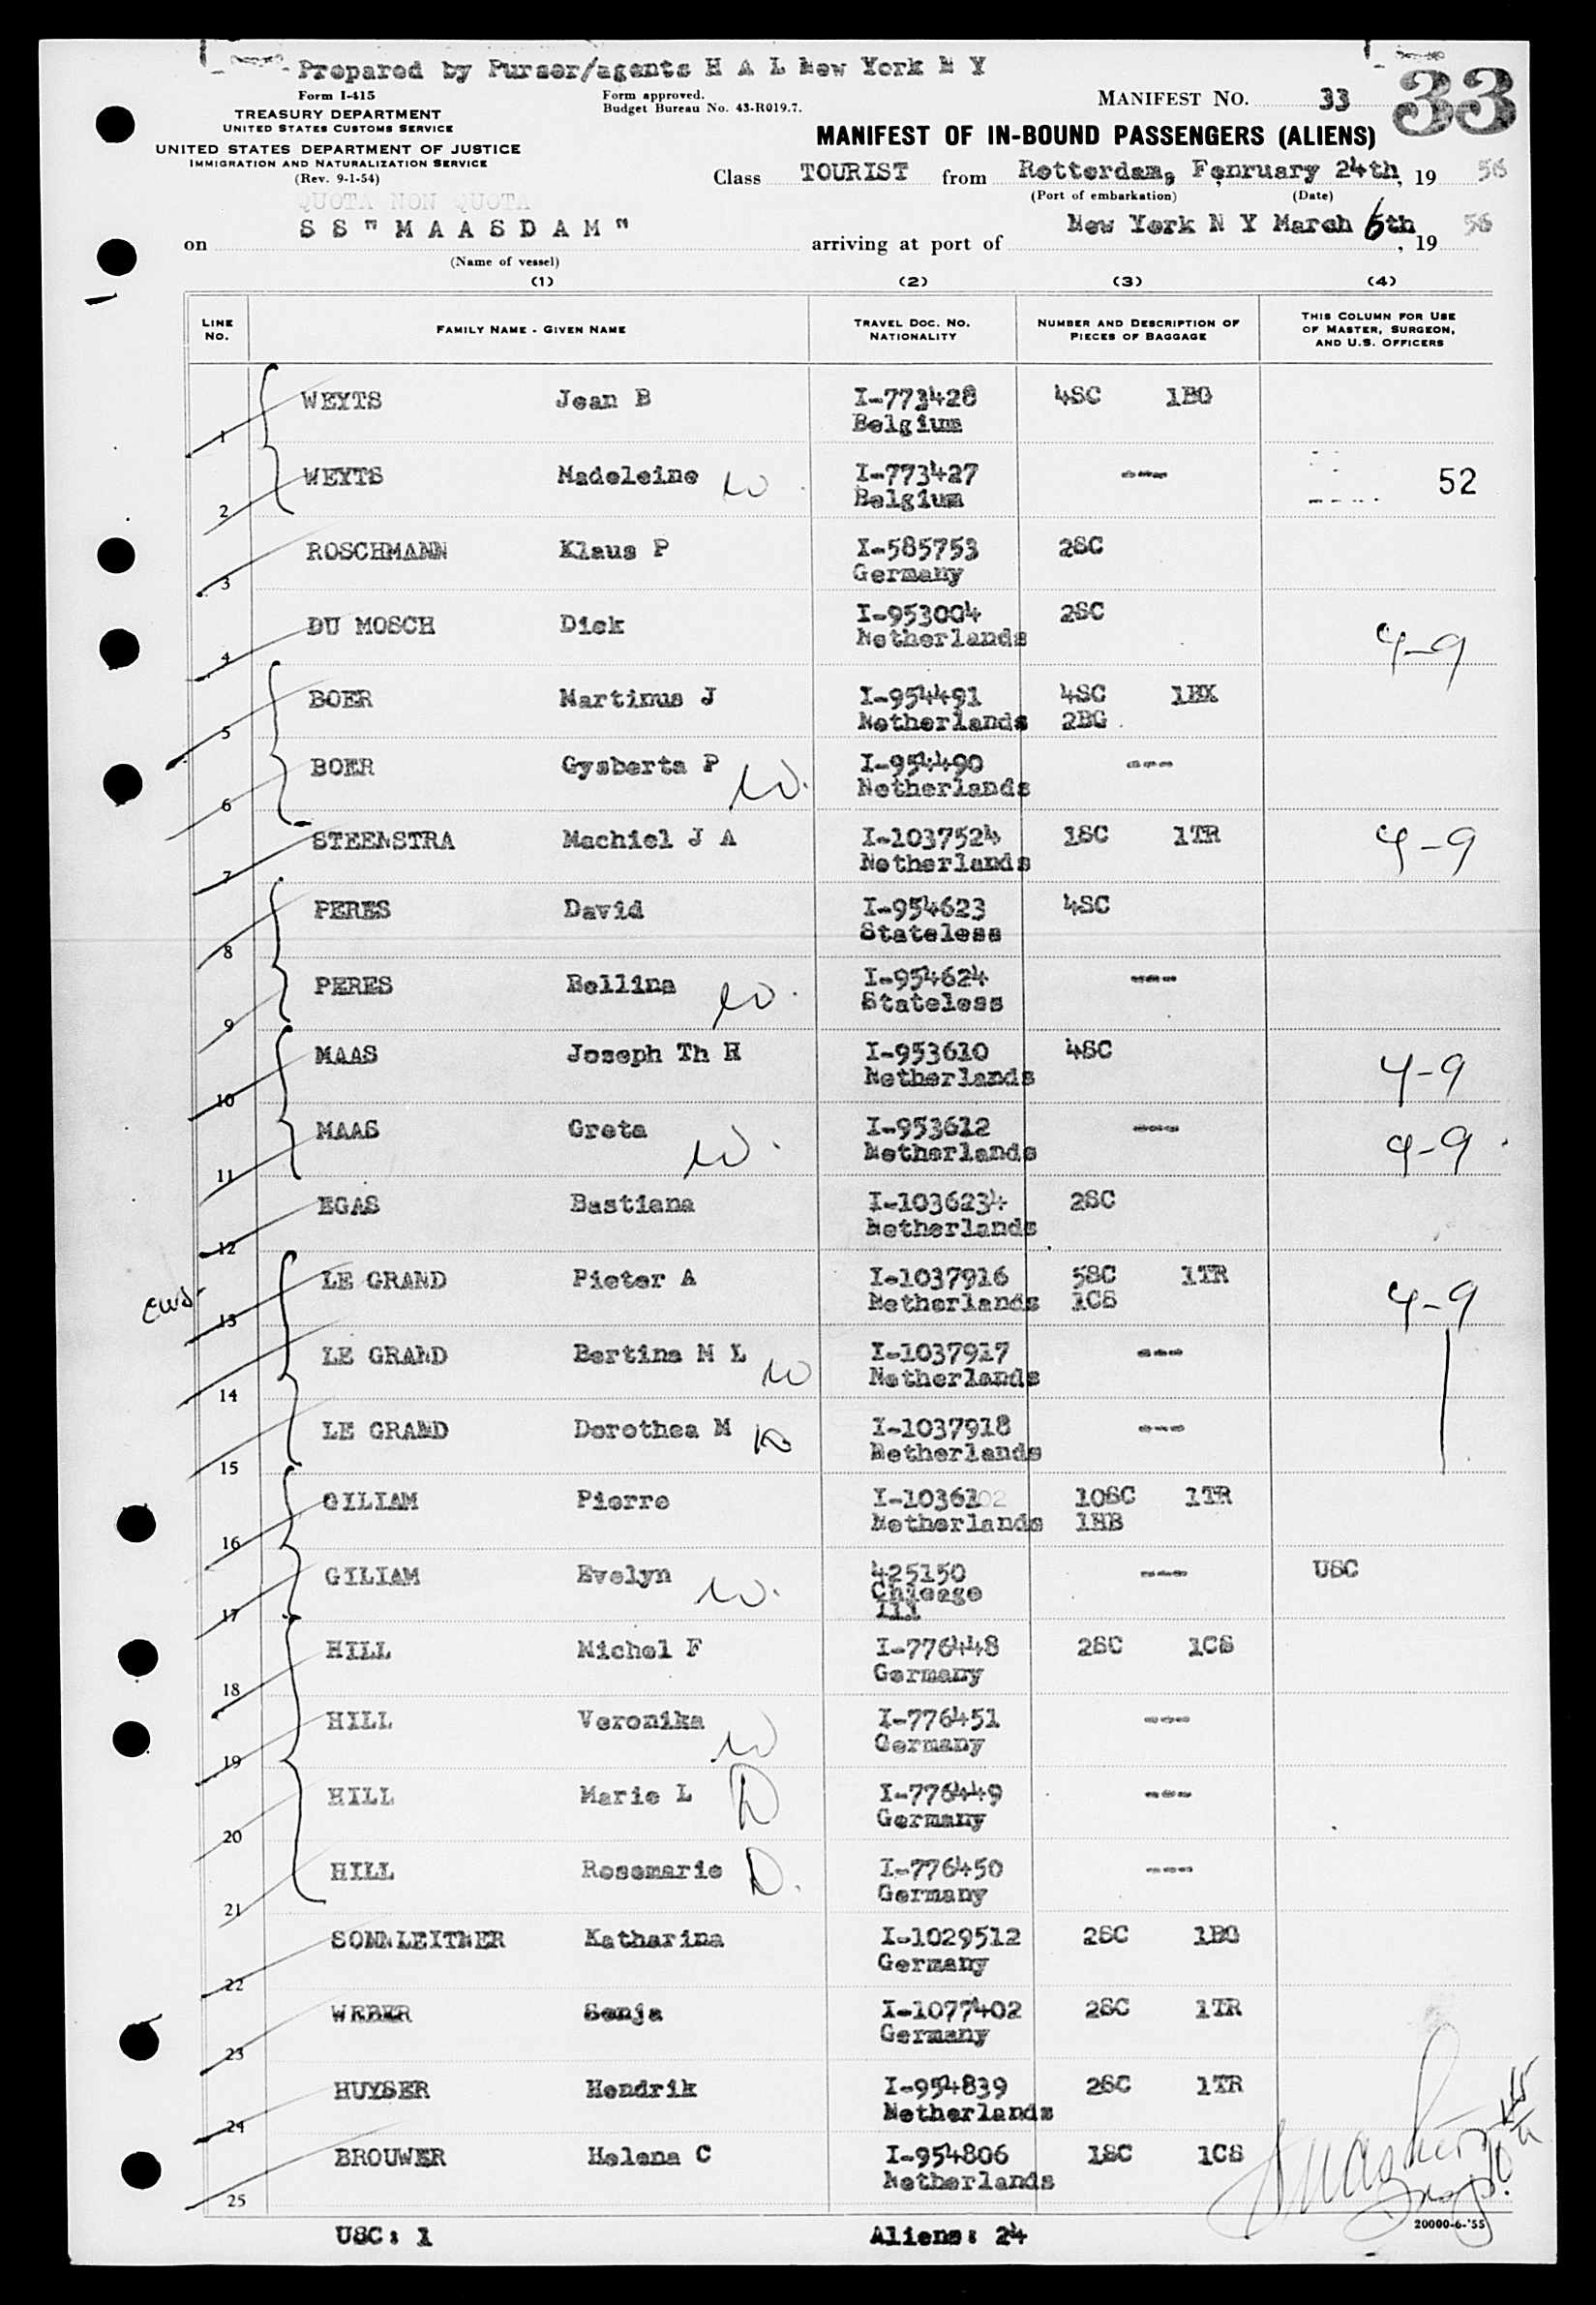 Prepared by Purser/agents H A L New York N Y
Form I-415
TREASURY DEPARTMENT
UNITED STATES CUSTOMS SERVICE
UNITED STATES DEPARTMENT OF JUSTICE
IMMIGRATION AND NATURALIZATION SERVICE
(Rev. 9-1-54)
Form approved.
Budget Bureau No. 43-R019.7.
MANIFEST NO. 33
33
MANIFEST OF IN-BOUND PASSENGERS (ALIENS)
Class TOURIST from Rotterdam, Fenruary 24th, 19 56
(Port of embarkation) (Date)
QUOTA NON QUOTA
on S S " M A A S D A M " arriving at port of New York N Y March 6th, 19 56
(Name of vessel)
(1) (2) (3) (4)
LINE NO. FAMILY NAME - GIVEN NAME TRAVEL DOC. NO. NATIONALITY NUMBER AND DESCRIPTION OF PIECES OF BAGGAGE THIS COLUMN FOR USE OF MASTER, SURGEON, AND U.S. OFFICERS
1 WEYTS Jean B I-773428 4SC 1BG
Belgium
2 WEYTS Madeleine W I-773427 --- 52
Belgium
3 ROSCHMANN Klaus P I-585753 2SC
Germany
4 DU MOSCH Dick I-953004 2SC 4-9
Netherlands
5 BOER Martinus J I-954491 4SC 1BX
Netherlands 2BG
6 BOER Gysberta P W. I-954490 ---
Netherlands
7 STEENSTRA Machiel J A I-1037524 1SC 1TR 4-9
Netherlands
8 PERES David I-954623 4SC
Stateless
9 PERES Bellina W. I-954624 ---
Stateless
10 MAAS Joseph Th H I-953610 4SC 4-9
Netherlands
11 MAAS Greta W. I-953612 --- 4-9
Netherlands
12 EGAS Bastiana I-1036234 2SC
Netherlands
13 LE GRAND Pieter A I-1037916 5SC 1TR 4-9
Netherlands 1CS
14 LE GRAND Bertina M L W I-1037917 ---
Netherlands
15 LE GRAND Dorothea M I-1037918 ---
Netherlands
16 GILIAM Pierre I-1036102 10SC 1TR
Netherlands 1HB
17 GILIAM Evelyn W. 425150 --- USC
Chicago
Ill
18 HILL Michel F I-776448 2SC 1CS
Germany
19 HILL Veronika W I-776451 ---
Germany
20 HILL Marie L D I-776449 ---
Germany
21 HILL Rosemarie D. I-776450 ---
Germany
22 SONNLEITNER Katharina I-1029512 2SC 1BG
Germany
23 WEBER Sonja I-1077402 2SC 1TR
Germany
24 HUYSER Hendrik I-954839 2SC 1TR
Netherlands
25 BROUWER Helena C I-954806 1SC 1CS
Netherlands
20000-6-'55
USC: 1 Aliens: 24